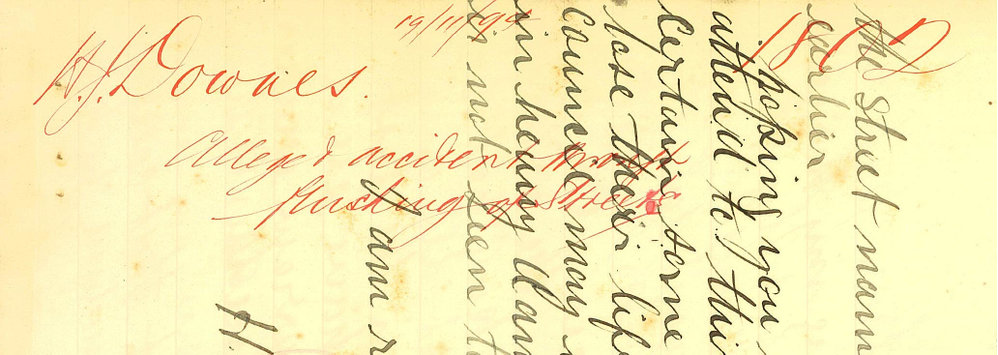 19/11/94
1802
H.J. Downes.
Alleged accident through
of Streets
the Street mann
earlier
Hoping you
attend to thi
Certain some
lose their lif
Council may
in heavy dam
is not seen t
I am
H.